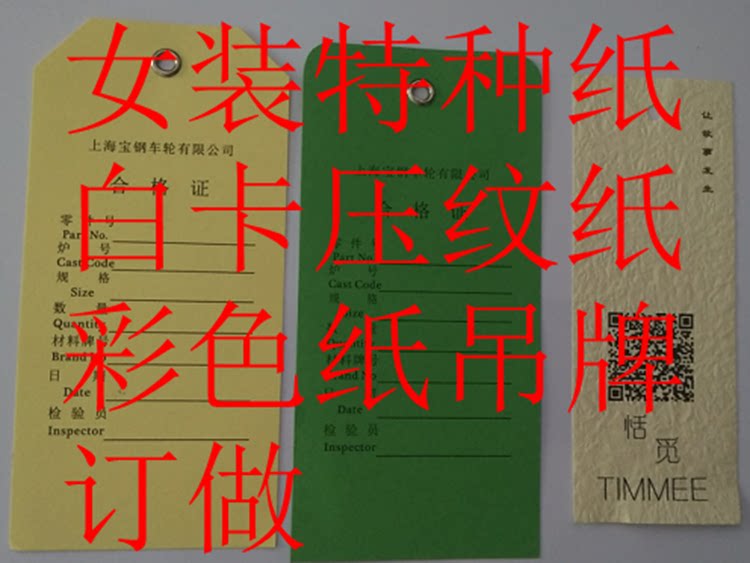 女装特种纸
白卡压纹纸
彩色纸吊牌
订做
上海宝钢车轮有限公司
合 格 证
零 件 号
Part No.
炉 号
Cast Code
规 格
Size
数 量
Quantity
材料牌号
Brand No
日 期
Date
检 验 员
Inspector
上海宝钢车轮有限公司
合 格 证
零 件 号
Part No.
炉 号
Cast Code
规 格
Size
数 量
Quantity
材料牌号
Brand No
日 期
Date
检 验 员
Inspector
让故事发生
恬觅
TIMMEE